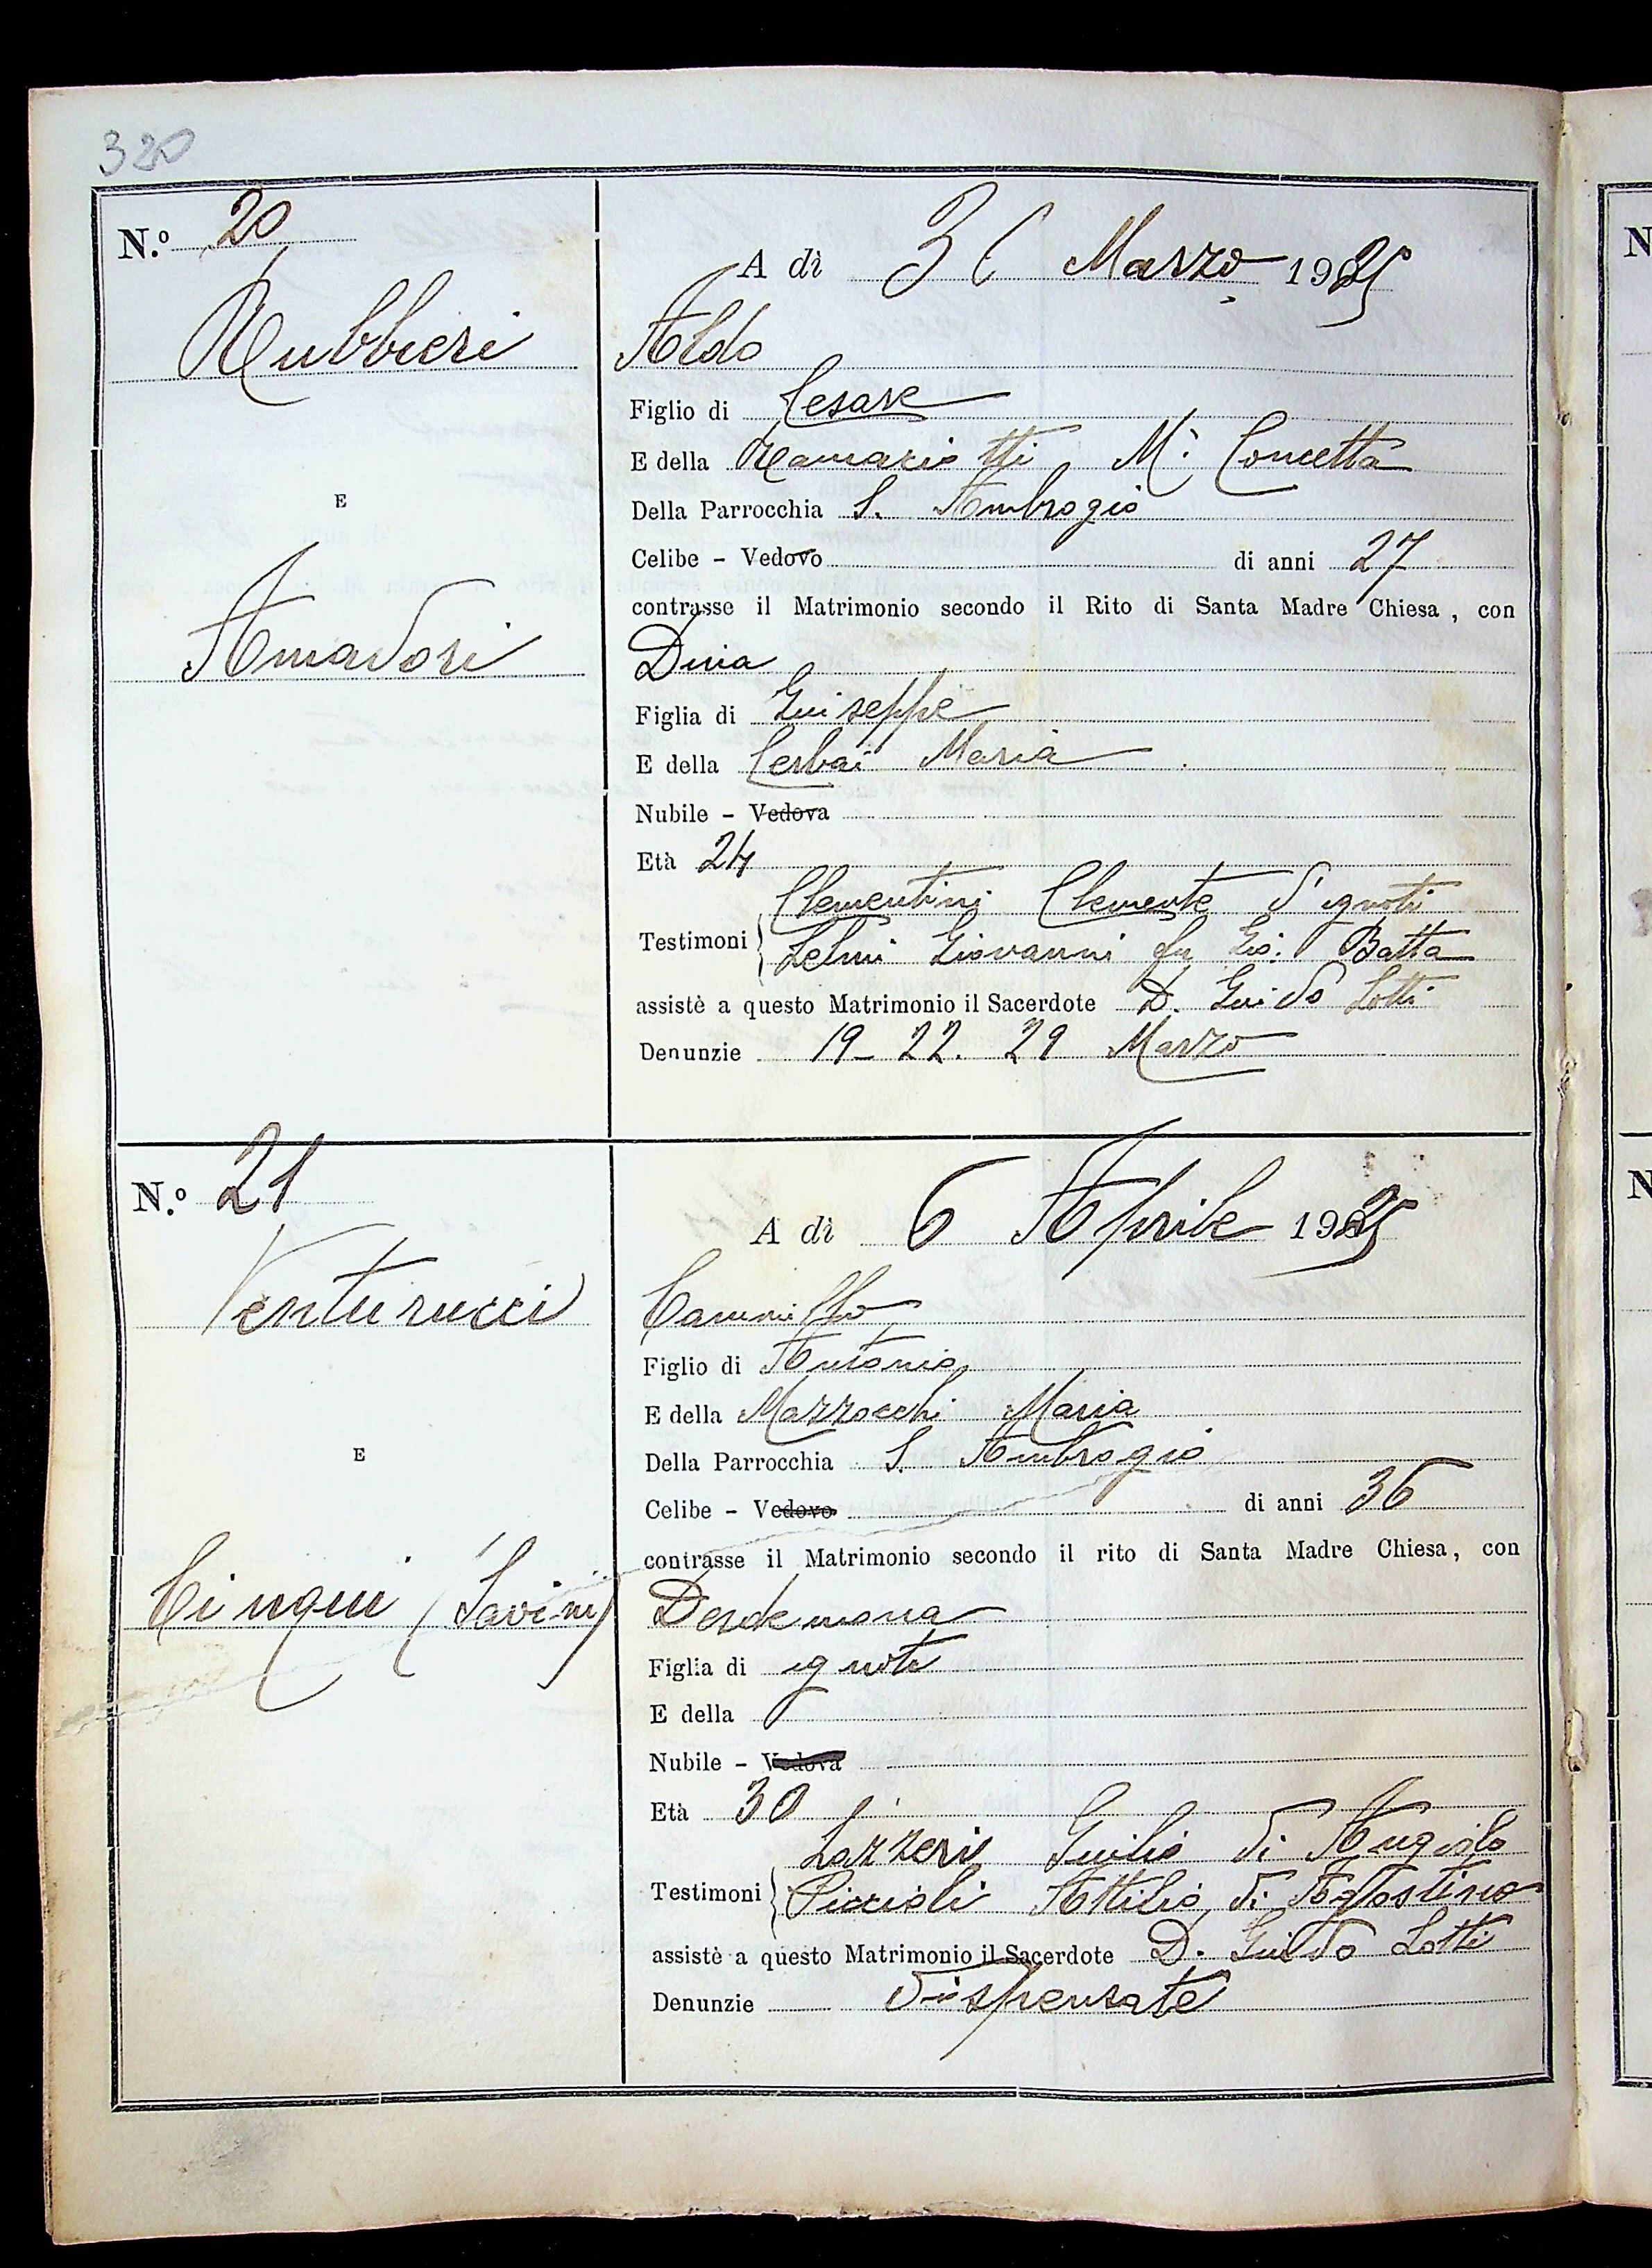 320
N.º 20
A dì 31 Marzo 1925
Rubbieri
Aldo
Figlio di Cesare
E della Ramaciotti M.ª Concetta
E
Della Parrocchia S. Ambrogio
Celibe - Vedovo di anni 27
contrasse il Matrimonio secondo il Rito di Santa Madre Chiesa, con
Amadori
Dina
Figlia di Giuseppe
E della Cerbai Maria
Nubile - Vedova
Età 24
Clementini Clemente d'ignoti
Testimoni Giovanni fu Gio: Batta
assistè a questo Matrimonio il Sacerdote D. Guido Lotti
Denunzie 19 - 22. 29 Marzo
N.º 21
A dì 6 Aprile 1925
Venturucci
Cammillo
Figlio di Antonio
E della Mazzocchi Maria
E
Della Parrocchia S. Ambrogio
Celibe - Vedovo di anni 36
contrasse il Matrimonio secondo il rito di Santa Madre Chiesa, con
Cinqui (Savini)
Desdemona
Figlia di ignoti
E della
Nubile - Vedova
Età 30
Lazzeri Giulio di Angiolo
Testimoni Piccioli Attilio di Agostino
assistè a questo Matrimonio il Sacerdote D. Guido Lotti
Denunzie dispensate
N
N